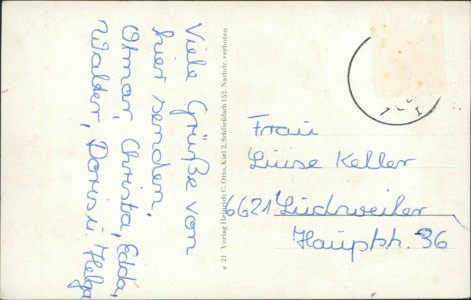 Viele Grüße von
hier senden,
Otmar, Christa, Edda,
Walter, Doris u. Helga
e 21 Verlag Heinrich C. Otto, Kiel 2, Schließfach 152. Nachdr. verboten
Frau
Luise Keller
6621 Ludweiler
Hauptstr. 36